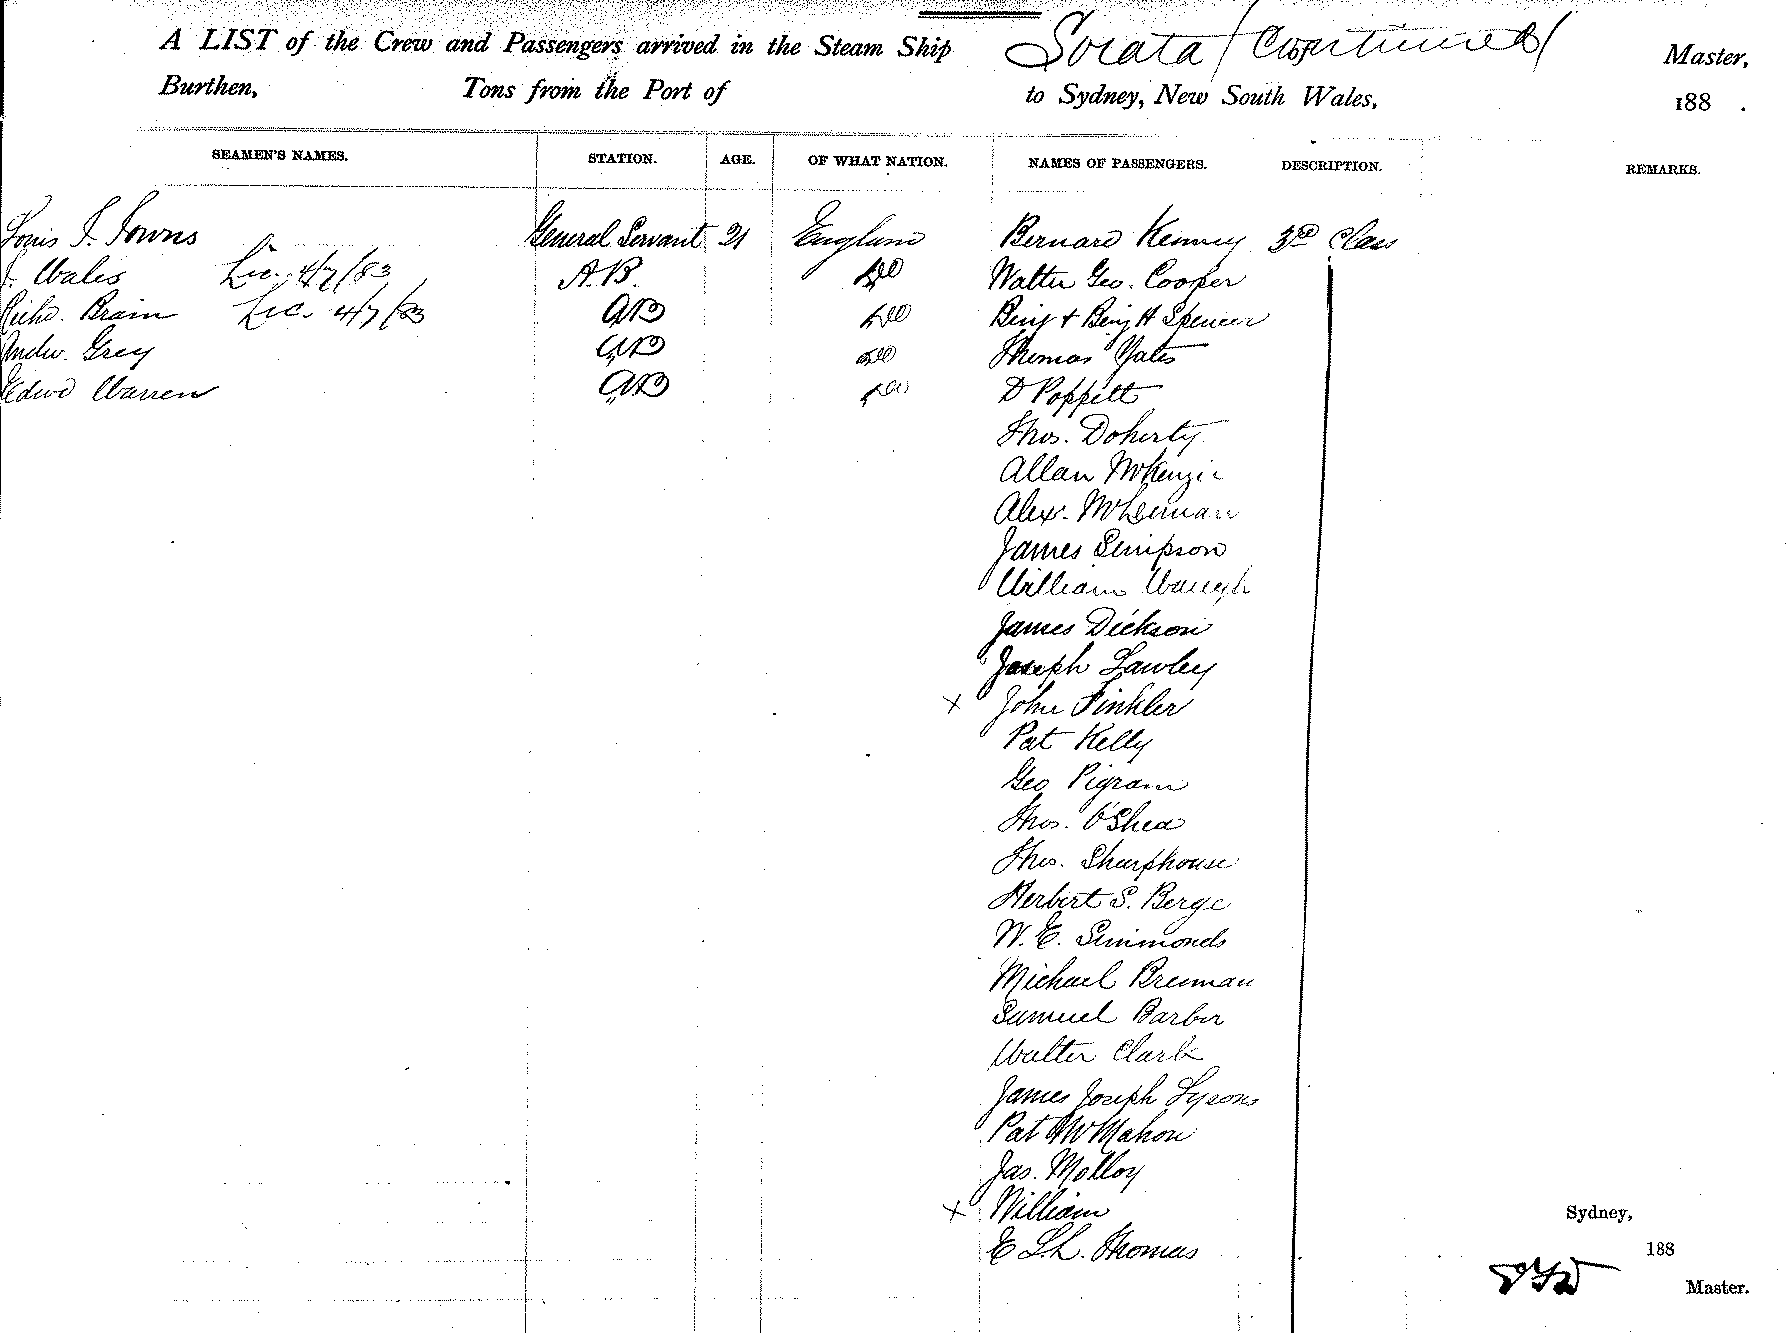 A LIST of the Crew and Passengers arrived in the Steam Ship Sorata (Continued) of Master,
Burthen, Tons from the Port of to Sydney, New South Wales, 188 .
SEAMEN'S NAMES. STATION. AGE. OF WHAT NATION. NAMES OF PASSENGERS. DESCRIPTION. REMARKS.
Louis J. Towns General Servant 21 England Bernard Kenney 3rd Class
J. Wales Lic. 4/7/83 A.B. Do Walter Geo. Cooper
Richd. Brain Lic. 4/7/83 AB Do Benj & Benj H Spencer
Andw. Grey AB Do Thomas Yates
Edwd Warren AB Do D Poppett
Thos. Doherty
Allan McKenzie
Alex. McLennan
James Simpson
William Waugh
James Dickson
Joseph Lawley
x John Finkler
Pat Kelly
Geo Pigram
Thos. O'Shea
Thos. Sharphouse
Herbert S. Berge
W. E. Simmonds
Michael Brennan
Samuel Barber
Walter Clark
James Joseph Lysons
Pat McMahon
Jas. Molloy
x William
E L.L. Thomas
Sydney,
188
Master.